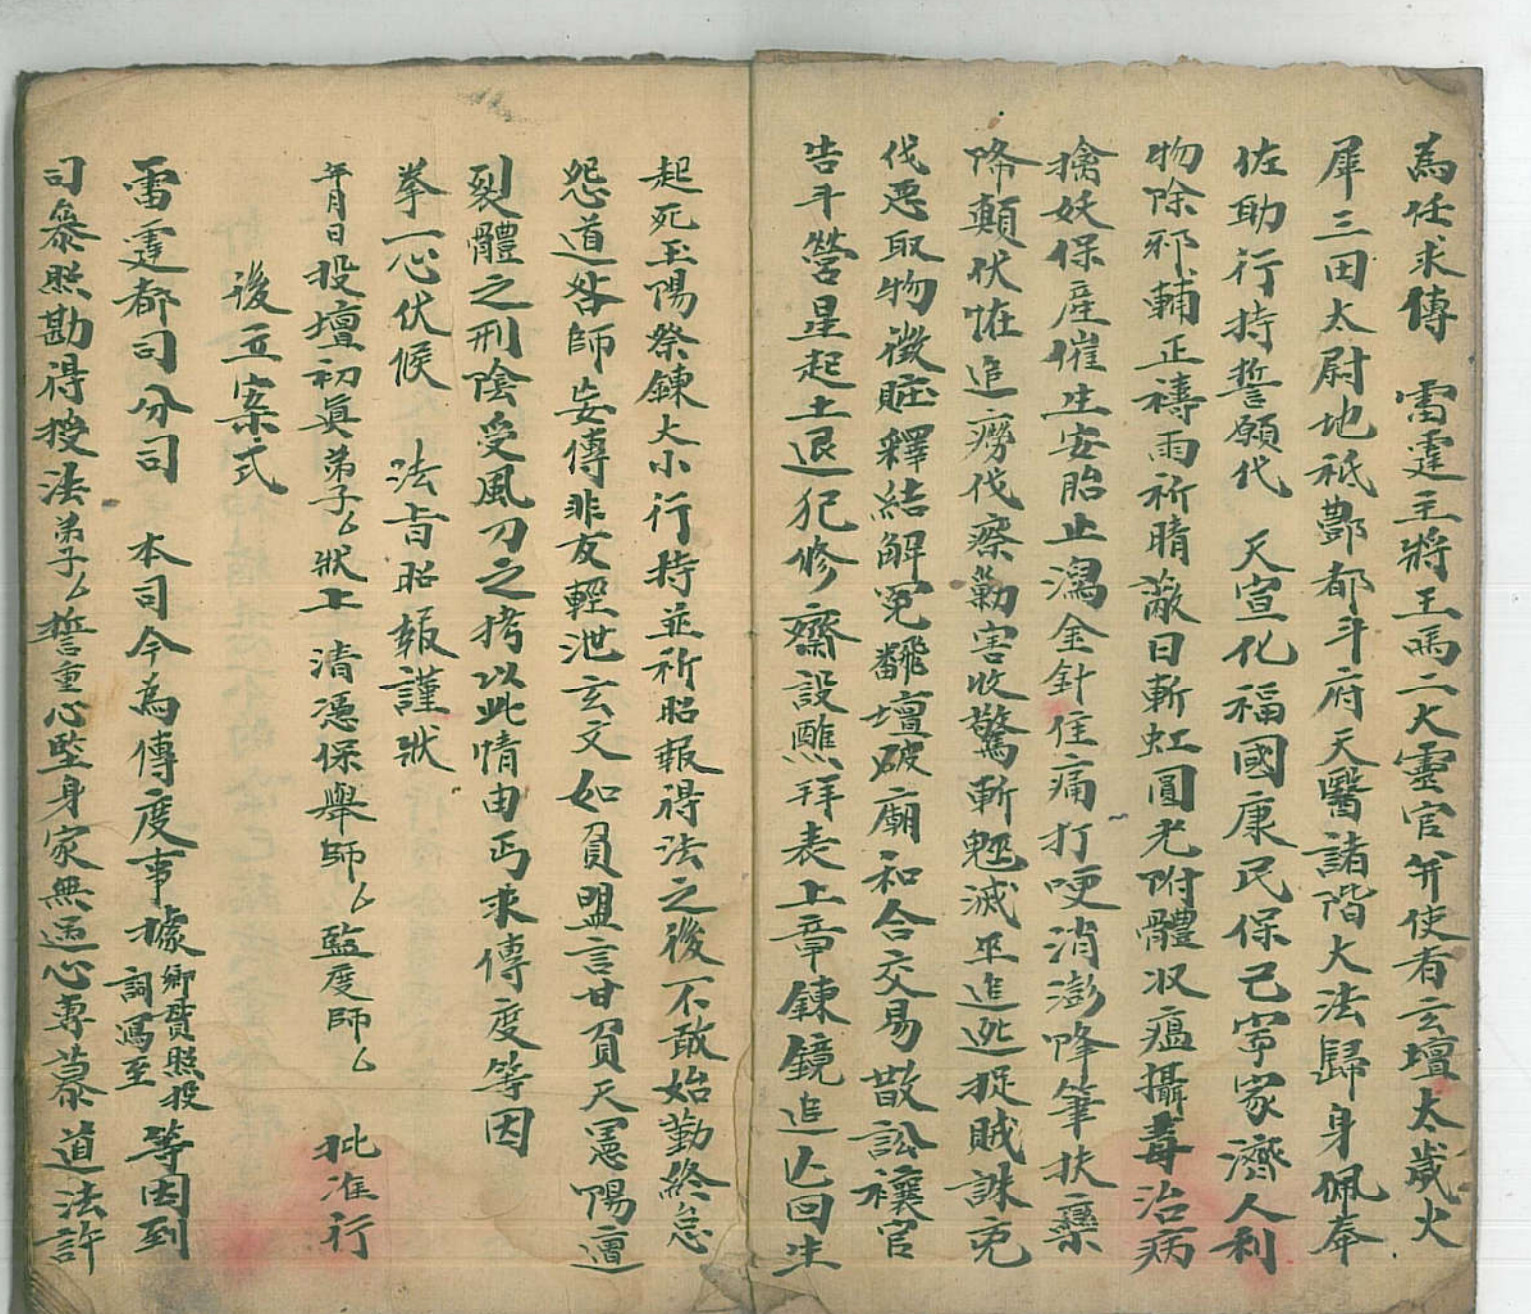 為任求傳　雷霆主將王馬二大靈官并使者玄壇太歲火
犀三田太尉地祇酆都斗府天醫諸階大法歸身佩奉
佐助行持誓願代　天宣化福國康民保己寧家濟人利
物除邪輔正禱雨祈晴蔽日斬虹圓光附體収瘟攝毒治病
擒妖保產催生安胎止瀉金針住痛打哽消澎降筆扶鸞
降顛伏怪追癆伐瘵勦害收驚斬魈滅巫追迯捉賊誅兇
伐惡取物徵賍釋結解冤翻壇破廟和合交易散訟禳官
告斗營星起土退犯修齋設醮拜表上章鍊鏡追亾回生
起死玉陽祭鍊大小行持並祈昭報得法之後不敢始勤終怠
怨道咎師妄傳非友輕泄玄文如負盟言甘負天憲陽遭
裂體之刑陰受風刀之拷以此情由丐求傳度等因
拳一心伏候　法旨昭報謹狀
年月日投壇初真弟子厶狀上　清憑保舉師厶監度師厶　批准行
後立案式
雷霆都司分司　本司今為傳度事據鄉貫照投詞寫至等因到
司叅照勘得授法弟子厶誓重心堅身家無逗心專慕道法許